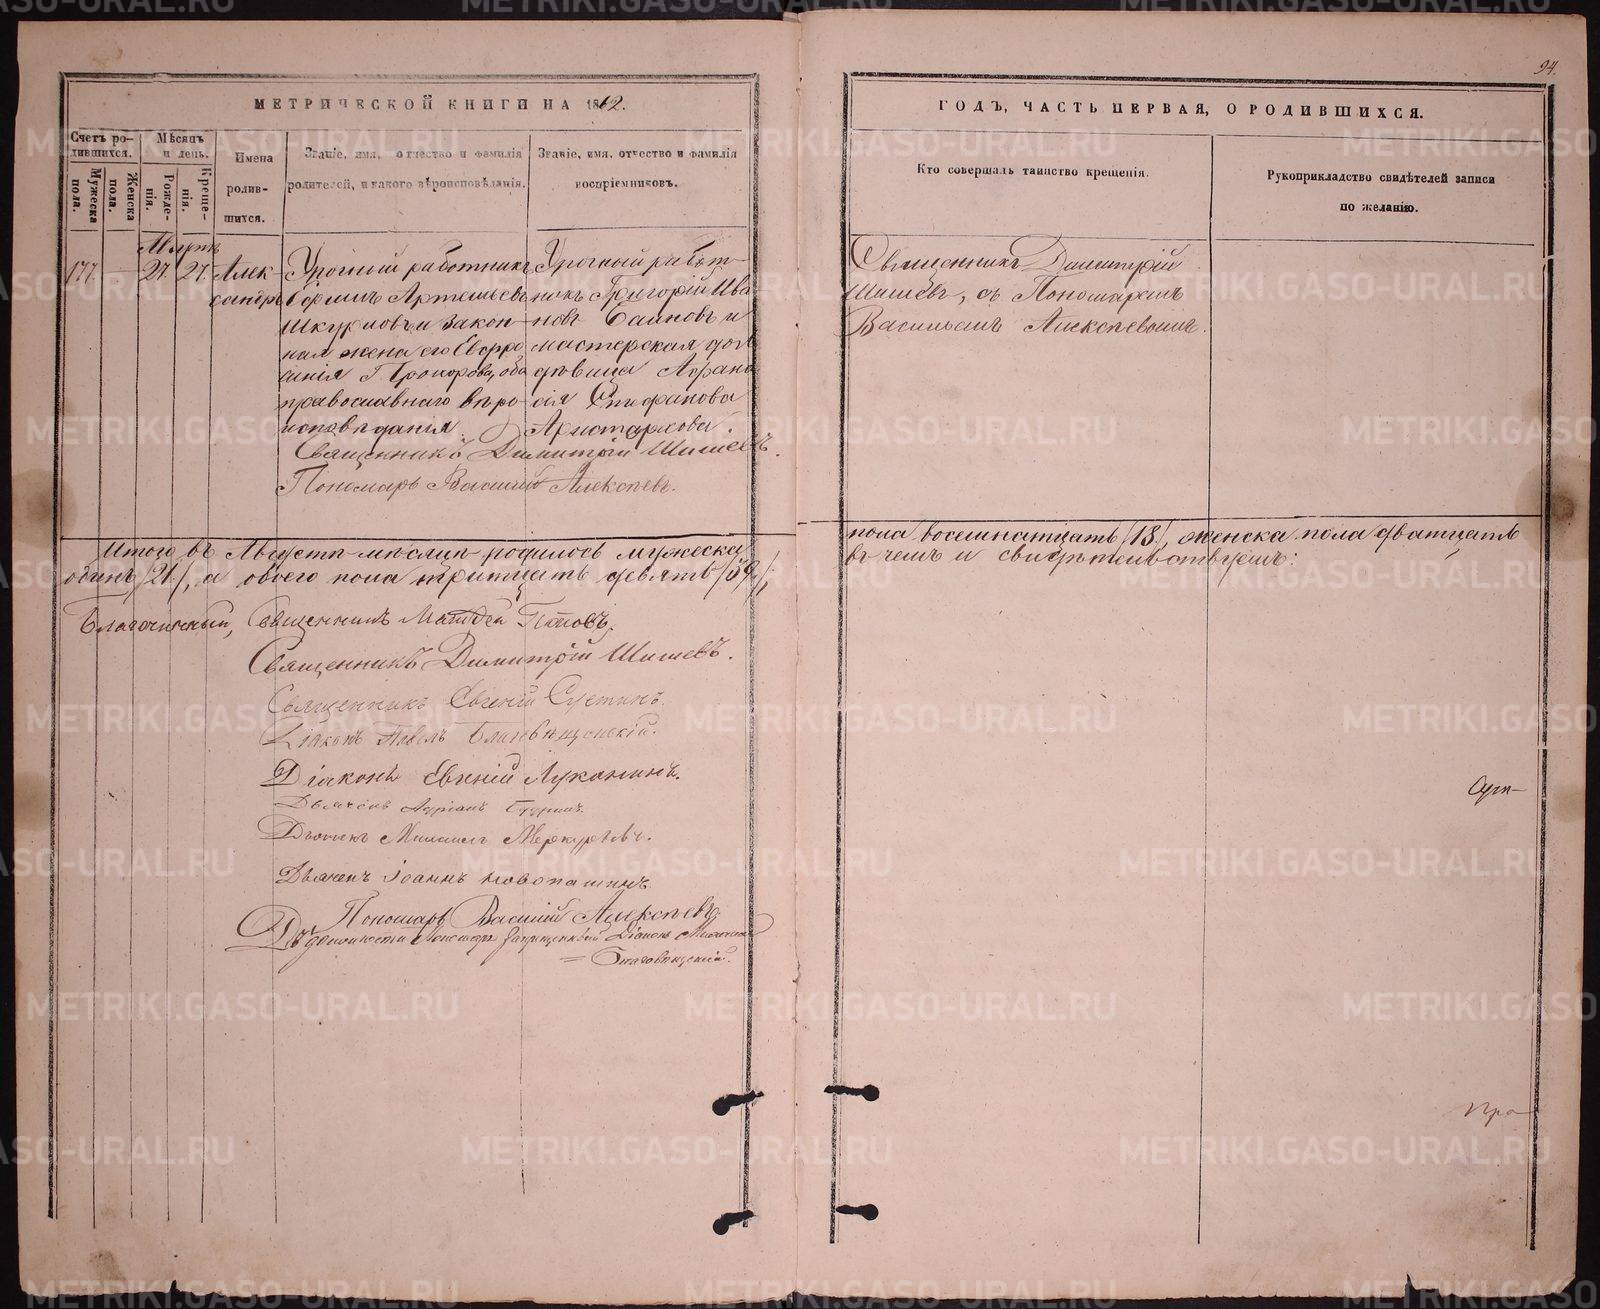 94.
МЕТРИЧЕСКОЙ КНИГИ НА 1862.
ГОДЪ, ЧАСТЬ ПЕРВАЯ, О РОДИВШИХСЯ.
Счетъ ро-
дившихся.
Мужеска
пола.
Женска
пола.
Мѣсяцъ
и день.
Рожде-
нія.
Креще-
нія.
Имена
родив-
шихся.
Званіе, имя, отчество и фамилія
родителей, и какого вѣроисповѣданія.
Званіе, имя, отчество и фамилія
воспріемниковъ.
Кто совершалъ таинство крещенія.
Рукоприкладство свидѣтелей записи
по желанію.
177
27. 27.
Алек-
сандръ
Урочный работникъ
Артемьевъ
и закон-
ная жена его
Прохорова, оба
православнаго вѣро-
исповѣданія.
Урочный работ-
никъ Григорій Ива
новъ Баиновъ и
мастерская дочь
дѣвица Афана
сія Стефанова
Аристархова.
Священникъ Димитрій
Шишевъ, съ Пономаремъ
Василіемъ Алексѣевымъ.
Священникъ Димитрій Шишевъ.
Пономарь Василій Алексѣевъ.
Итого въ Августѣ мѣсяцѣ родилось мужеска
пола восемнатцать /18/, женска пола дватцать
одинъ /21/, а обоего пола тритцать девять /39/;
въ чемъ и свидѣтельствуемъ:
Благочинный, Священникъ Матѳей Поповъ.
Священникъ Димитрій Шишевъ.
Священникъ Евгеній
Діаконъ Павелъ Благовѣщенскій.
Діаконъ Евгеній Луканинъ.
Дьячекъ
Дьячекъ Михаилъ Меркурьевъ.
Дьячекъ Іоаннъ Новопашинъ.
Пономарь Василій Алексѣевъ.
должности Пономаря Діаконъ
Благовѣщенскій.
METRIKI.GASO-URAL.RU